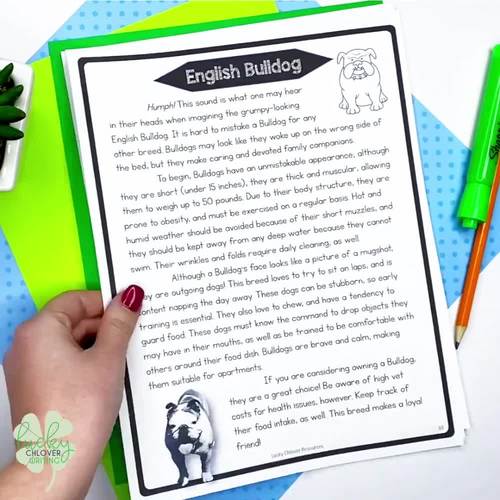 English Bulldog
Humph! This sound is what one may hear
in their heads when imagining the grumpy-looking
English Bulldog. It is hard to mistake a Bulldog for any
other breed. Bulldogs may look like they woke up on the wrong side of
the bed, but they make caring and devoted family companions.
To begin, Bulldogs have an unmistakable appearance, although
they are short (under 15 inches), they are thick and muscular, allowing
them to weigh up to 50 pounds. Due to their body structure, they are
prone to obesity, and must be exercised on a regular basis. Hot and
humid weather should be avoided because of their short muzzles, and
they should be kept away from any deep water because they cannot
swim. Their wrinkles and folds require daily cleaning, as well.
Although a Bulldog's face looks like a picture of a mugshot,
they are outgoing dogs! This breed loves to try to sit on laps, and is
content napping the day away. These dogs can be stubborn, so early
training is essential. They also love to chew, and have a tendency to
guard food. These dogs must know the command to drop objects they
may have in their mouths, as well as be trained to be comfortable with
others around their food dish. Bulldogs are brave and calm, making
them suitable for apartments.
If you are considering owning a Bulldog,
they are a great choice! Be aware of high vet
costs for health issues, however. Keep track of
their food intake, as well. This breed makes a loyal
friend!
Lucky Chlover Resources
lucky
CHLOVER
WRITING